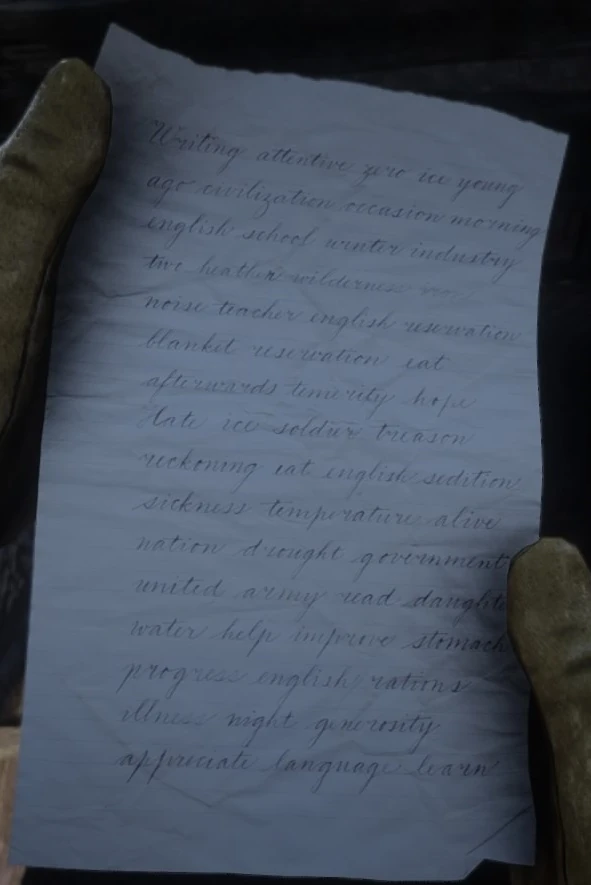 Writing attentive zero ice young
ago civilization occasion morning
english school winter industry
two heather wilderness
noise teacher english reservation
blanket reservation eat
afterwards temerity hope
Hate ice soldier treason
reckoning eat english sedition
sickness temperature alive
nation drought government
united army read daughte
water help improve stomach
progress english rations
illness night generosity
appreciate language learn